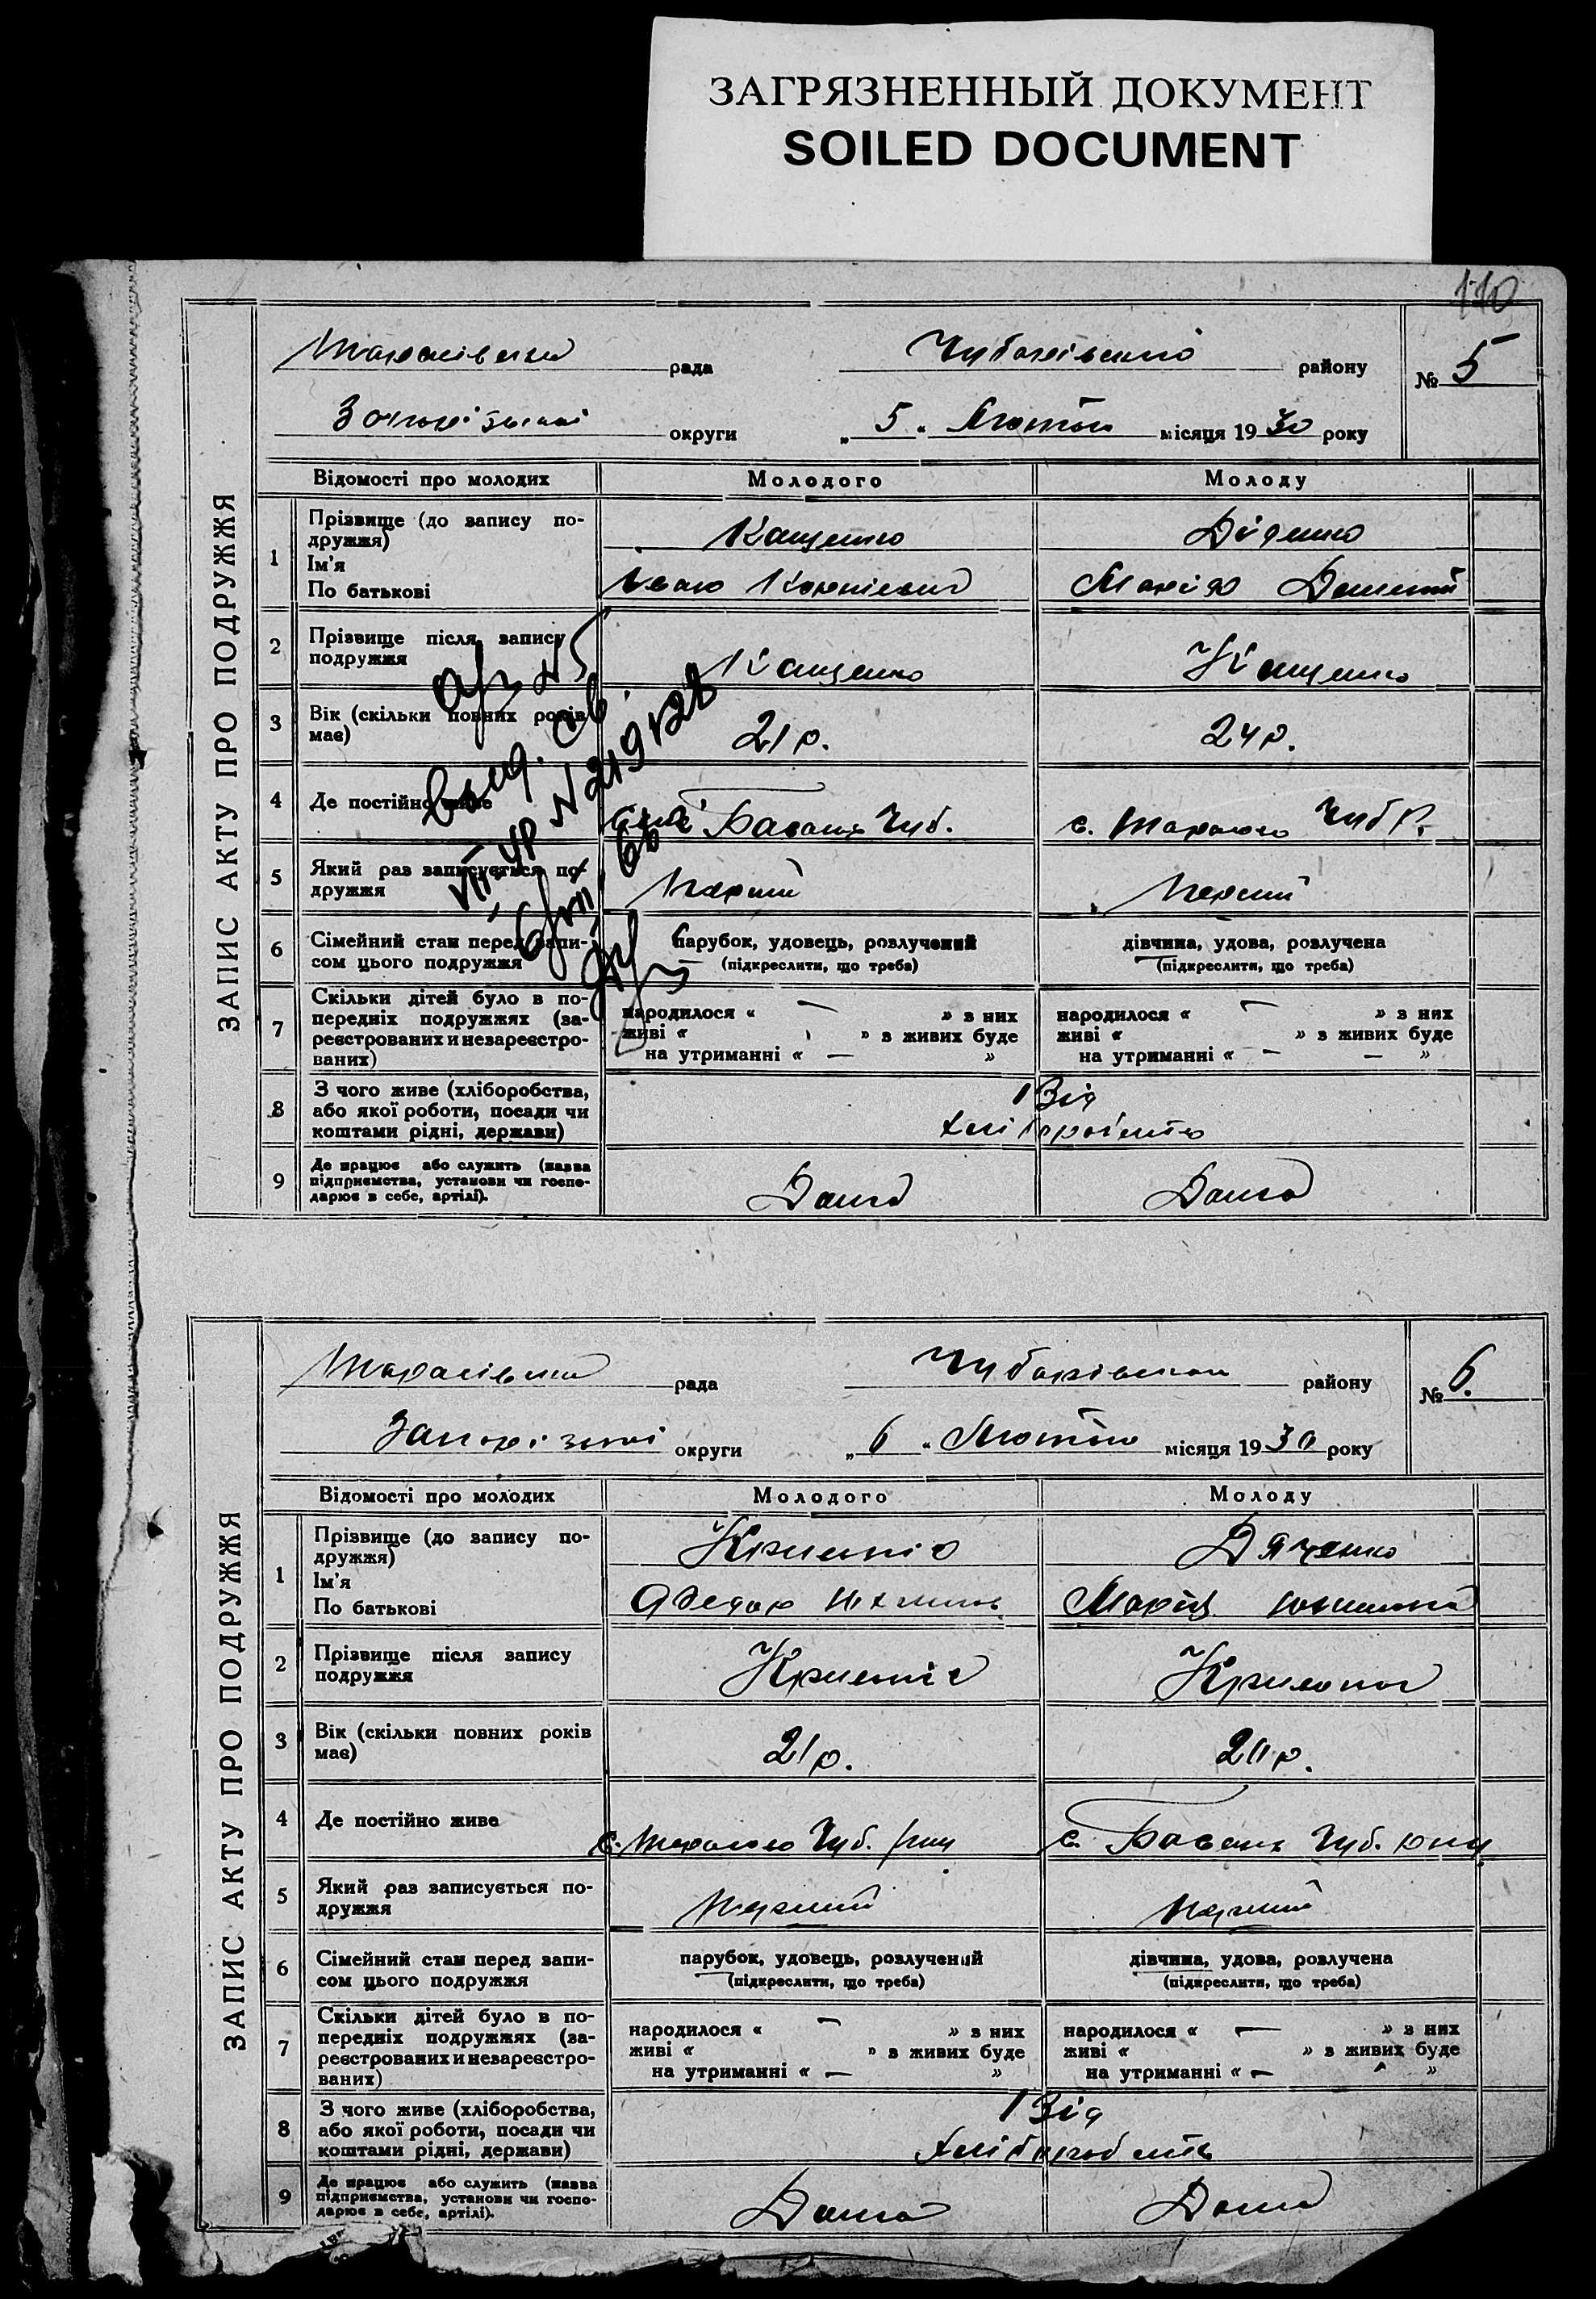 ЗАГРЯЗНЕННЫЙ ДОКУМЕНТ
SOILED DOCUMENT
110
ЗАПИС АКТУ ПРО ПОДРУЖЖЯ
рада району № 5
округи „ 5 “ Лютого місяця 1930 року
Відомості про молодих Молодого Молоду
1 Прізвище (до запису по-
дружжя) Кащенко Діденко
Ім'я
По батькові Марія
2 Прізвище після запису
подружжя Кащенко Кащенко
3 Вік (скільки повних років
має) 21 р. 24 р.
4 Де постійно живе Басань Чуб. с. Чуб. р.
5 Який раз записується по-
дружжя Перший Перший
6 Сімейний стан перед запи-
сом цього подружжя
парубок, удовець, розлучений
(підкреслити, що треба)
дівчина, удова, розлучена
(підкреслити, що треба)
7 Скільки дітей було в по-
передніх подружжях (за-
реєстрованих и незареєстро-
ваних)
народилося « — » з них
живі « » з живих буде
на утриманні « — »
народилося « — » з них
живі « » з живих буде
на утриманні « — — »
8 З чого живе (хліборобства,
або якої роботи, посади чи
коштами рідні, держави)
Від
9 Де працює або служить (назва
підприємства, установи чи госпо-
дарює в себе, артілі).
Дома Дома
ЗАПИС АКТУ ПРО ПОДРУЖЖЯ
рада району № 6.
округи „ 6 “ Лютого місяця 1930 року
Відомості про молодих Молодого Молоду
1 Прізвище (до запису по-
дружжя) Дяченко
Ім'я
По батькові Марія
2 Прізвище після запису
подружжя
3 Вік (скільки повних років
має) 21 р. 20 р.
4 Де постійно живе с. Чуб. с. Басань Чуб.
5 Який раз записується по-
дружжя Перший Перший
6 Сімейний стан перед запи-
сом цього подружжя
парубок, удовець, розлучений
(підкреслити, що треба)
дівчина, удова, розлучена
(підкреслити, що треба)
7 Скільки дітей було в по-
передніх подружжях (за-
реєстрованих и незареєстро-
ваних)
народилося « — » з них
живі « » з живих буде
на утриманні « — »
народилося « — » з них
живі « » з живих буде
на утриманні « — »
8 З чого живе (хліборобства,
або якої роботи, посади чи
коштами рідні, держави)
Від
9 Де працює або служить (назва
підприємства, установи чи госпо-
дарює в себе, артілі).
Дома Дома